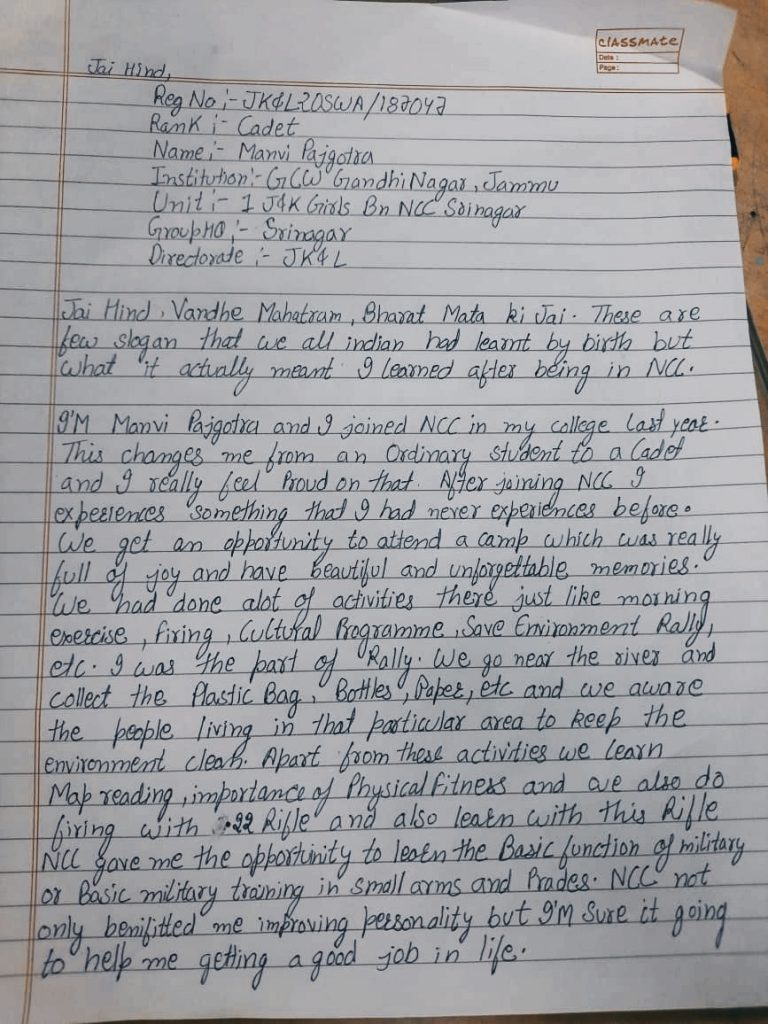 CLASSMATE
Date :
Page :
Jai Hind,
Reg No :- JK&L20SWA/187047
Rank :- Cadet
Name :- Manvi Pajgotra
Institution :- GCW Gandhi Nagar, Jammu
Unit :- 1 J&K Girls Bn NCC Srinagar
Group HQ :- Srinagar
Directorate :- JK&L
Jai Hind, Vandhe Mahatram, Bharat Mata ki Jai. These are
few slogan that we all indian had learnt by birth but
what it actually meant I learned after being in NCC.
I'M Manvi Pajgotra and I joined NCC in my college last year.
This changes me from an Ordinary student to a Cadet
and I really feel Proud on that. After joining NCC I
experiences something that I had never experiences before.
We get an opportunity to attend a camp which was really
full of joy and have beautiful and unforgettable memories.
We had done alot of activities there just like morning
exercise, firing, Cultural Programme, Save Environment Rally,
etc. I was the part of Rally. We go near the river and
collect the Plastic Bag, Bottles, Paper, etc and we aware
the people living in that particular area to keep the
environment clean. Apart from these activities we learn
Map reading, importance of Physical Fitness and we also do
firing with .22 Rifle and also learn with this Rifle
NCC gave me the opportunity to learn the Basic function of military
or Basic military training in small arms and Prades. NCC not
only benifitted me improving personality but I'M Sure it going
to help me getting a good job in life.